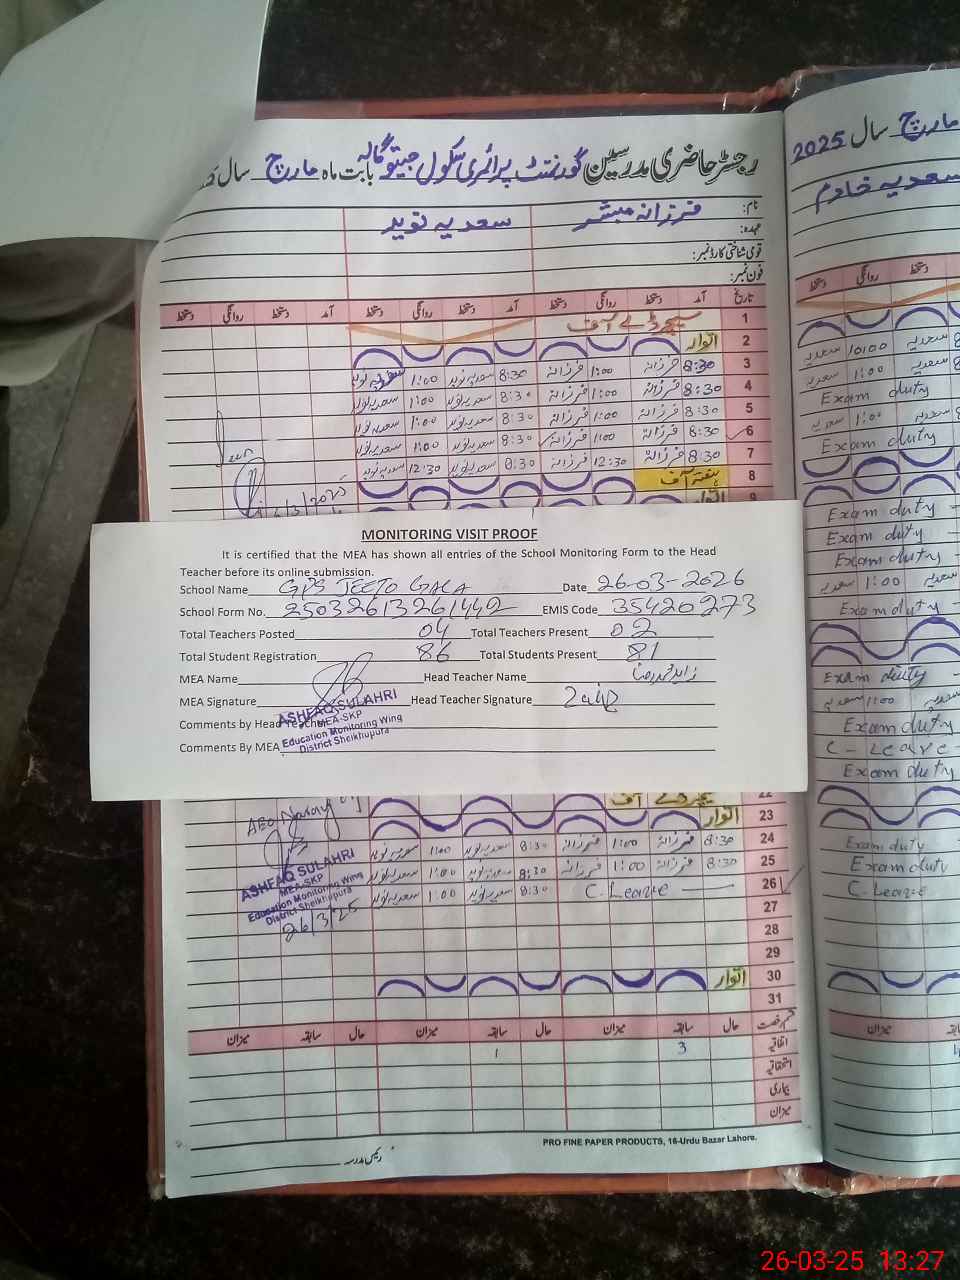 رجسٹر حاضری مدرسین گورنمنٹ پرائمری سکول جیتو گالہ بابت ماہ مارچ سال
نام: فرزانہ مبشر سعدیہ نوید
عہدہ:
قومی شناختی کارڈ نمبر:
فون نمبر:
تاریخ آمد دستخط روانگی دستخط آمد دستخط روانگی دستخط آمد دستخط روانگی دستخط
1
2 اتوار
3 8:30 فرزانہ 1:00 فرزانہ 8:30 سعدیہ نوید 1:00 سعدیہ نوید
4 8:30 فرزانہ 1:00 فرزانہ 8:30 سعدیہ نوید 1:00 سعدیہ نوید
5 8:30 فرزانہ 1:00 فرزانہ 8:30 سعدیہ نوید 1:00 سعدیہ نوید
6 8:30 فرزانہ 1:00 فرزانہ 8:30 سعدیہ نوید 1:00 سعدیہ نوید
7 8:30 فرزانہ 12:30 فرزانہ 8:30 سعدیہ نوید 12:30 سعدیہ نوید
8 ہفتہ آف
9 اتوار
MONITORING VISIT PROOF
It is certified that the MEA has shown all entries of the School Monitoring Form to the Head
Teacher before its online submission.
School Name GPS JEETO GALA Date 26-03-2026
School Form No. 25032613261442 EMIS Code 35420273
Total Teachers Posted 04 Total Teachers Present 02
Total Student Registration 86 Total Students Present 81
MEA Name Head Teacher Name
MEA Signature Head Teacher Signature
Comments by Head Teacher
Comments By MEA
ASHFAQ SULAHRI
MEA-SKP
Education Monitoring Wing
District Sheikhupura
22
23 اتوار
24 8:30 فرزانہ 1:00 فرزانہ 8:30 سعدیہ نوید 1:00 سعدیہ نوید
25 8:30 فرزانہ 1:00 فرزانہ 8:30 سعدیہ نوید 1:00 سعدیہ نوید
26 C. Leave 8:30 سعدیہ نوید 1:00 سعدیہ نوید
27
28
29
30 اتوار
31
ASHFAQ SULAHRI
MEA-SKP
Education Monitoring Wing
District Sheikhupura
26/3/25
قسم رخصت حال سابقہ میزان حال سابقہ میزان حال سابقہ میزان
اتفاقیہ 3 1
استحقاقیہ
بیماری
میزان
PRO FINE PAPER PRODUCTS, 16-Urdu Bazar Lahore.
رئیس مدرسہ
مارچ سال 2025
سعدیہ خادم
روانگی دستخط
10:00 سعدیہ
1:00 سعدیہ
Exam duty
1:00 سعدیہ
Exam duty
Exam duty
Exam duty
Exam duty
1:00 سعدیہ
Exam duty
Exam duty
1:00 سعدیہ
Exam duty
C - Leave -
Exam duty
Exam duty
Exam duty
C - Leave
میزان
26-03-25 13:27